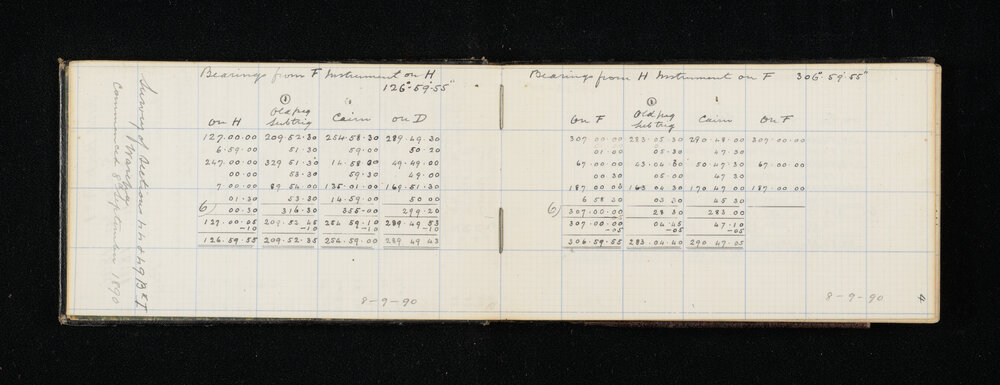 Survey of Sections 44 & 49 Bk I
Commenced 8th September 1890
Bearings from F Instrument on H
126°.59.55"
① Old peg
on H Subtrig Cairn on D
127.00.00 209.52.30 254.58.30 289.49.30
6.59.00 51.30 59.00 50.20
247.00.00 329 51.30 14.58 30 49.49.00
00.00 53.30 59.30 49.00
7 00.00 89 54.00 135.01.00 169.51.30
01.30 53.30 14.59.00 50 00
6) 00.30 316.30 355.00 299.20
127.00.05 209.52 45 254 59.10 289.49 53
-10 -10 -10 -10
126.59.55 209.52.35 254.59.00 289 49 43
8-9-90
Bearings from H Instrument on F 306°.59'.55"
① Old peg
on F Subtrig Cairn on F
307.00.00 283.05.30 290.48.00 307.00.00
01.00 05.30 47.30
67.00.00 43.04.30 50.47.30 67.00.00
00 30 05.00 47 30
187 00.00 163 04 30 170 47 00 187.00 00
6 58 30 03 30 45 30
6) 307.00.00 28 30 283 00
307.00.00 04.45 47.10
-05 -05 -05
306.59.55 283.04.40 290 47.05
8-9-90
4